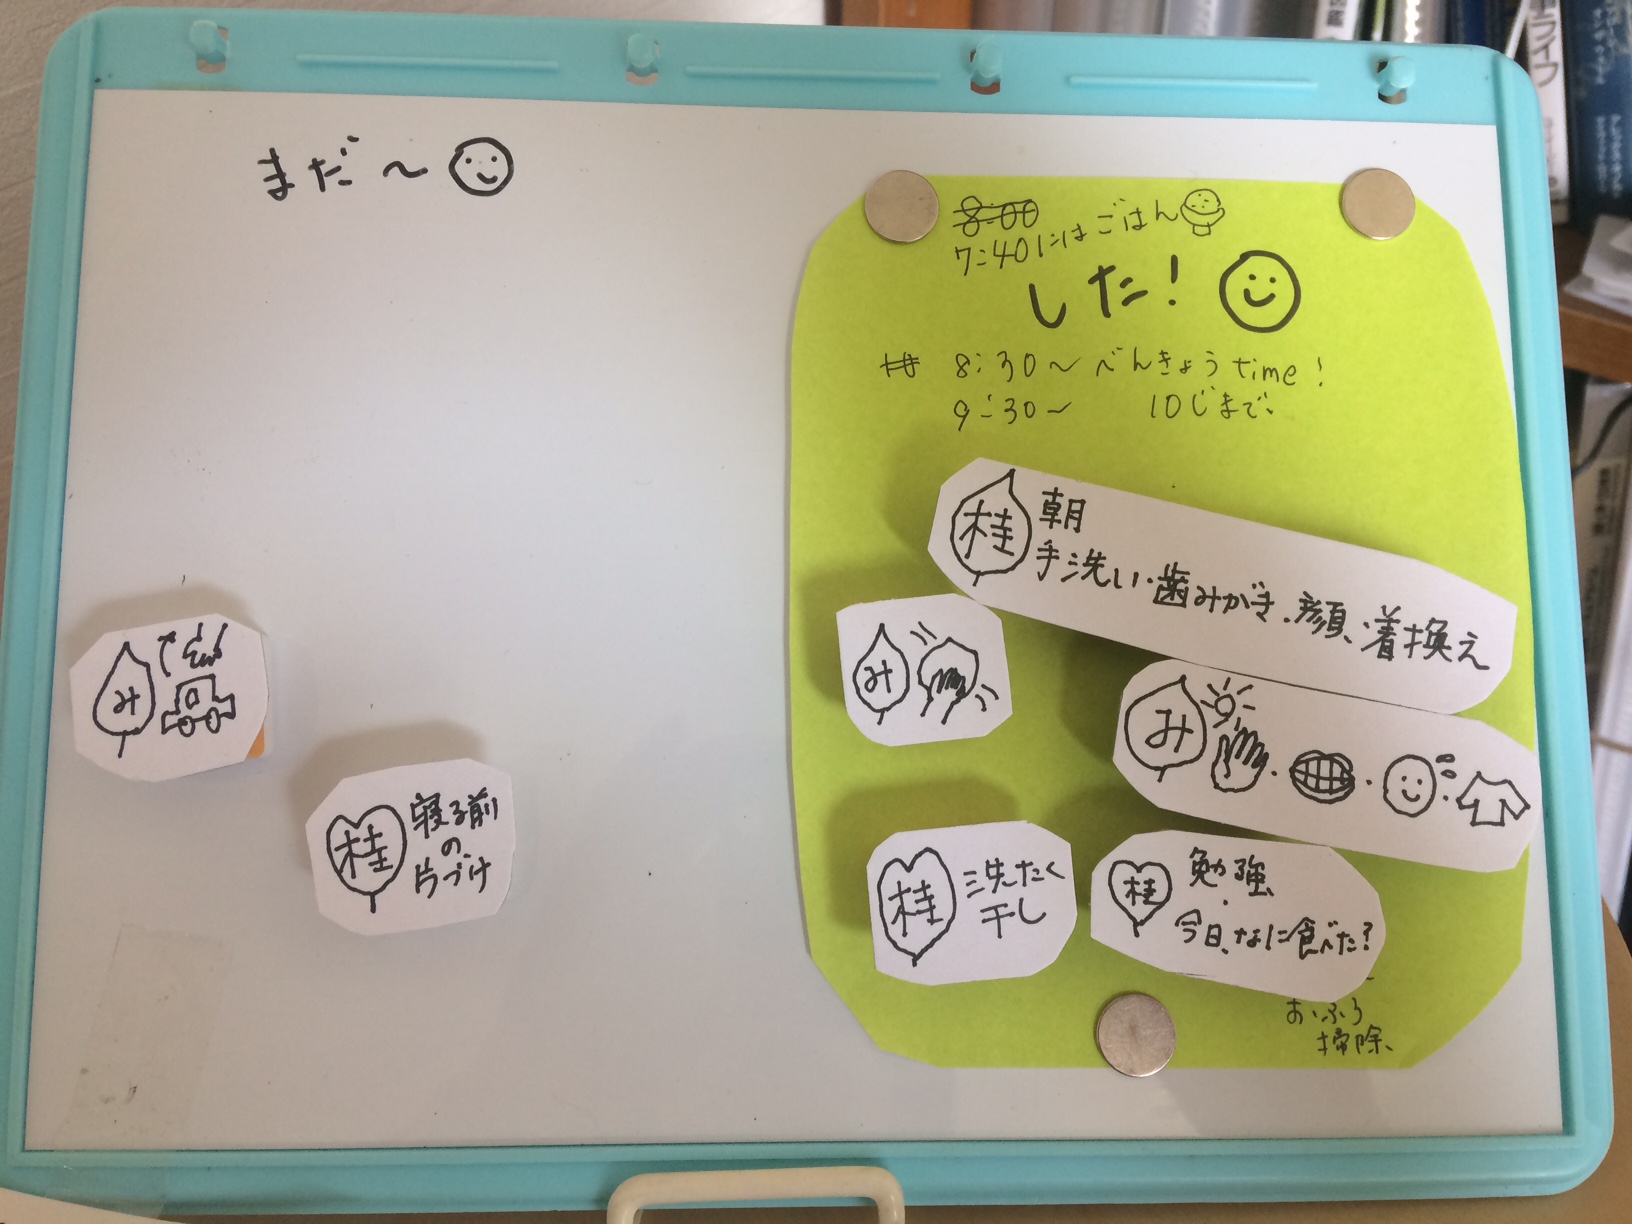 まだ〜
8:00
7:40にはごはん
した!
8:30〜べんきょうtime!
9:30〜 10じまで
桂 朝
手洗い・歯みがき、顔、着換え
み
み
み
桂 寝る前
の
片づけ
桂 洗たく
干し
桂 勉強
今日、なに食べた?
おふろ
掃除
ライフ